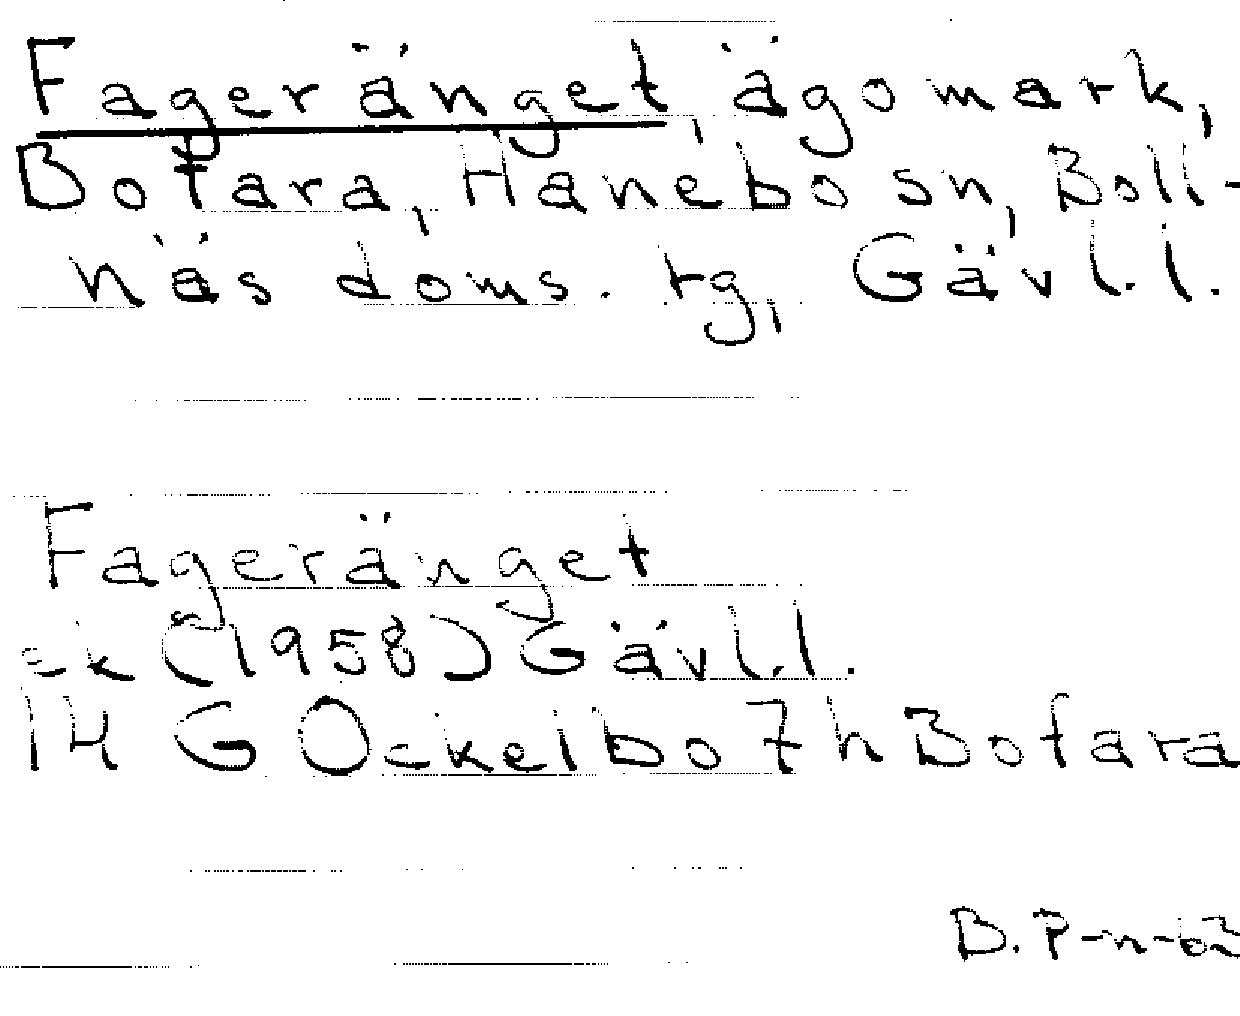 Fageränget, ägomark,
Bofara, Hanebo sn, Boll-
näs doms. tg, Gävl.l.
Fageränget
ek (1958) Gävl.l.
14 G Ockelbo 7h Bofara
B. P-n-63